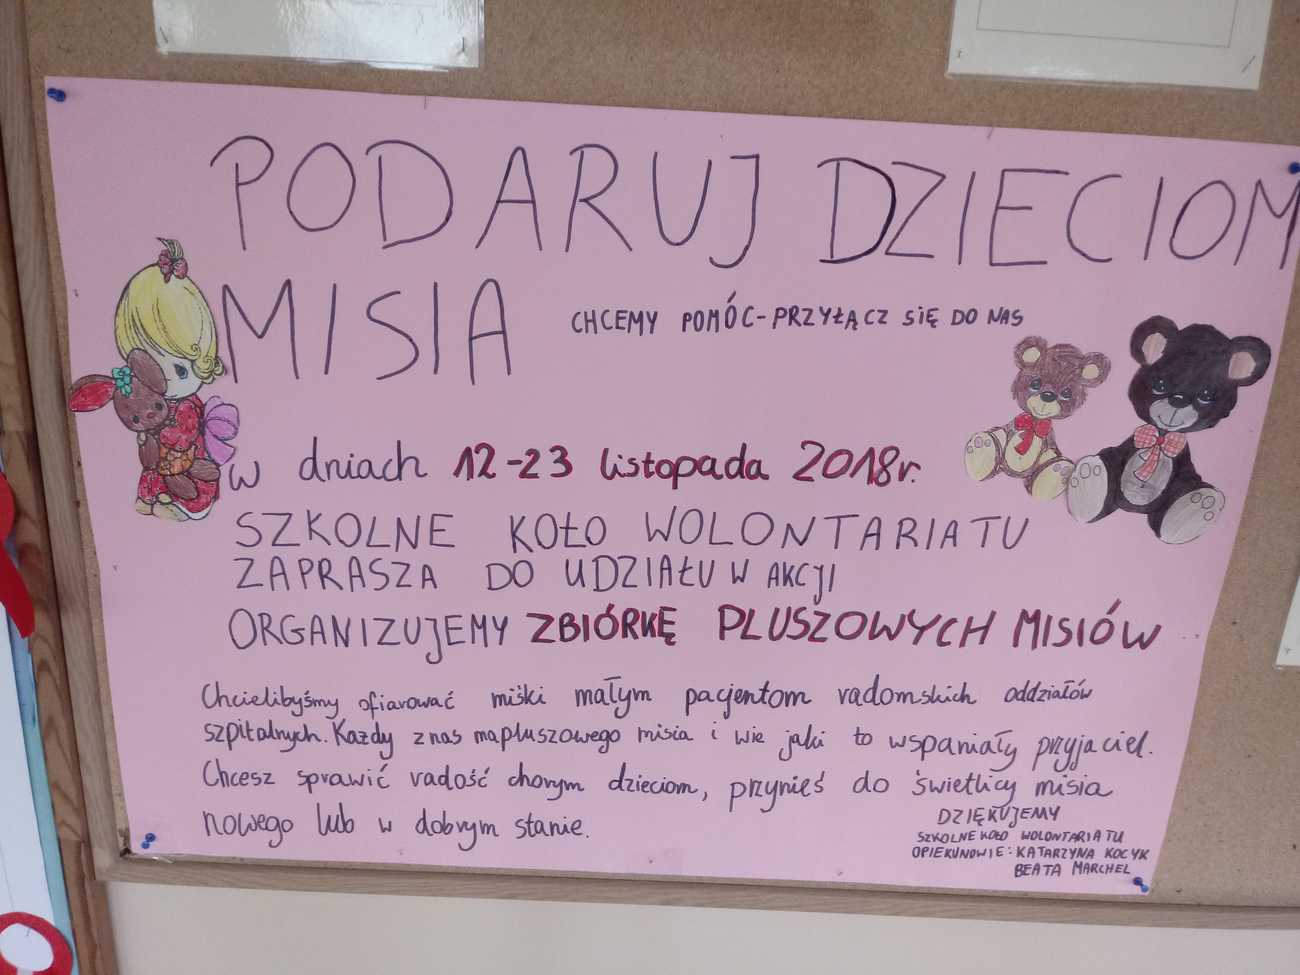 PODARUJ DZIECIOM
MISIA
CHCEMY POMÓC-PRZYŁĄCZ SIĘ DO NAS
w dniach 12-23 listopada 2018r.
SZKOLNE KOŁO WOLONTARIATU
ZAPRASZA DO UDZIAŁU W AKCJI
ORGANIZUJEMY ZBIÓRKĘ PLUSZOWYCH MISIÓW
Chcielibyśmy ofiarować miśki małym pacjentom radomskich oddziałów
szpitalnych. Każdy z nas ma pluszowego misia i wie jaki to wspaniały przyjaciel.
Chcesz sprawić radość chorym dzieciom, przynieś do świetlicy misia
nowego lub w dobrym stanie.
DZIĘKUJEMY
SZKOLNE KOŁO WOLONTARIATU
OPIEKUNOWIE: KATARZYNA KOCYK
BEATA MARCHEL